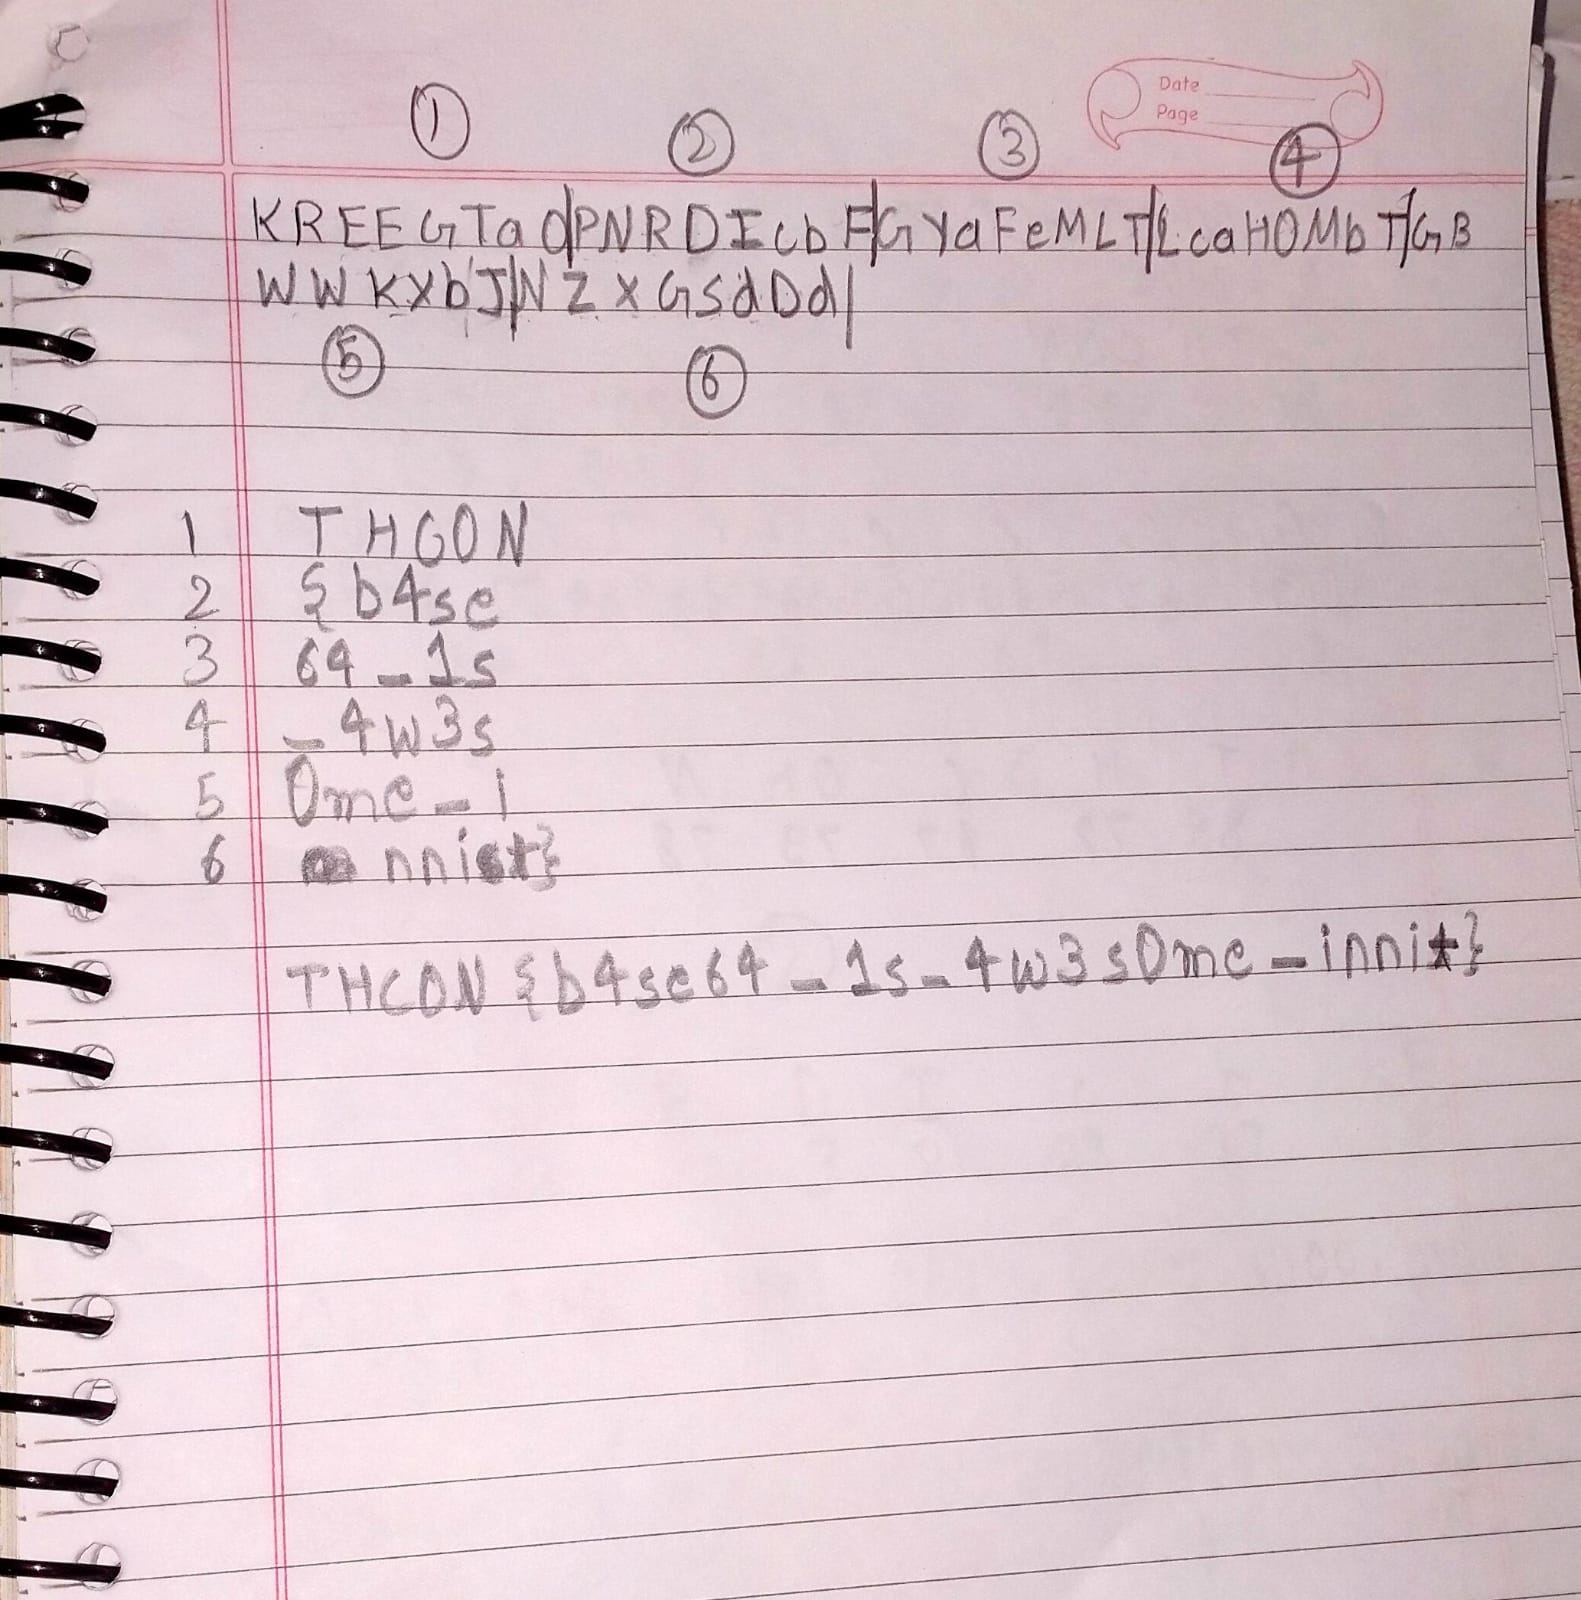 ① ② ③ ④
Date
Page
KREEGTad|PNRDIcbF|GYaFeMLT|LcaHOMbT|GB
WWKXbJ|NZXGSdDd|
⑤ ⑥
1 THCON
2 {b4se
3 64_1s
4 _4w3s
5 0me_i
6 nnit}
THCON{b4se64_1s_4w3s0me_innit}